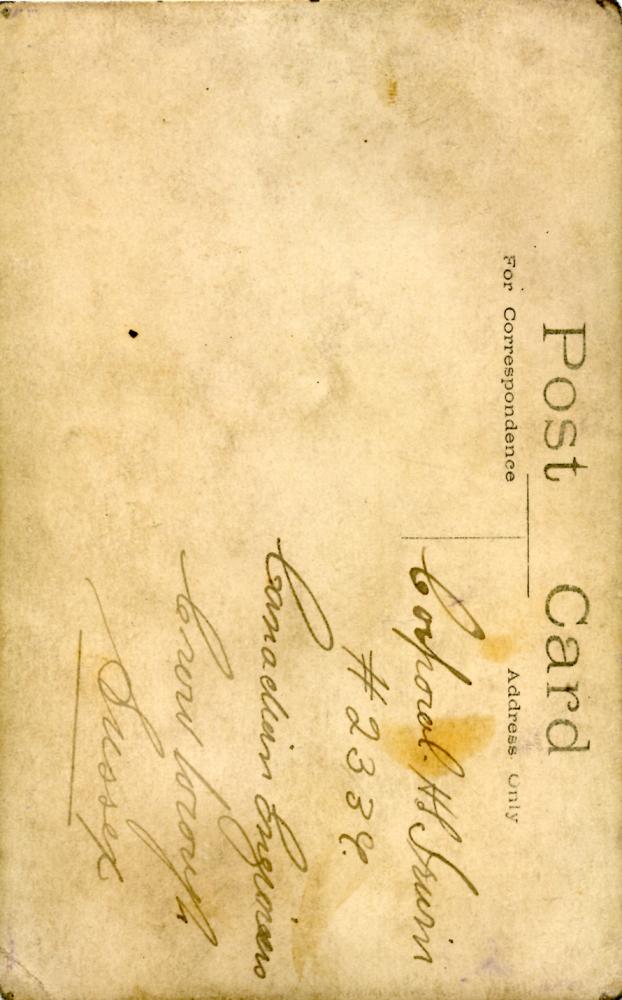 Post Card
For Correspondence
Address Only
Corporal. H S Irwin
# 2339.
Canadian Engineers
Crowborough
Sussex